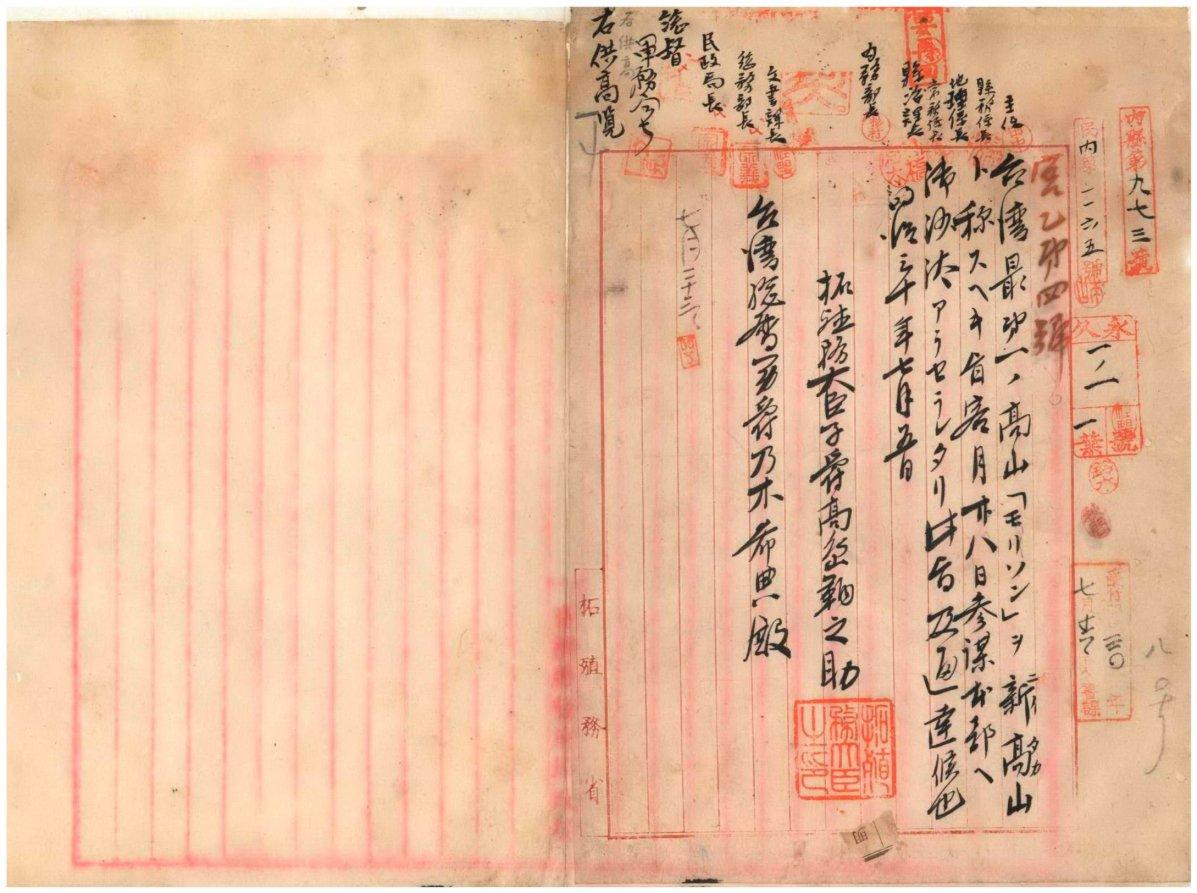 内縣第九七三號
民内第一一六五號
永久
一ノ一
號
一葉
七月十七日
八号
主任
縣務係長
地理係長
縣治課長
内務部長
文書課長
総務部長
民政局長
総督
右供高覧
乙第四號
台湾最第一ノ高山「モリソン」ヲ新高山
ト称スヘキ旨客月廿八日参謀本部ヘ
御沙汰アラセラレタリ此旨及通達候也
明治三十年七月五日
拓殖務大臣子爵高島鞆之助
台湾総督男爵乃木希典殿
拓殖務大臣之印
拓殖務省